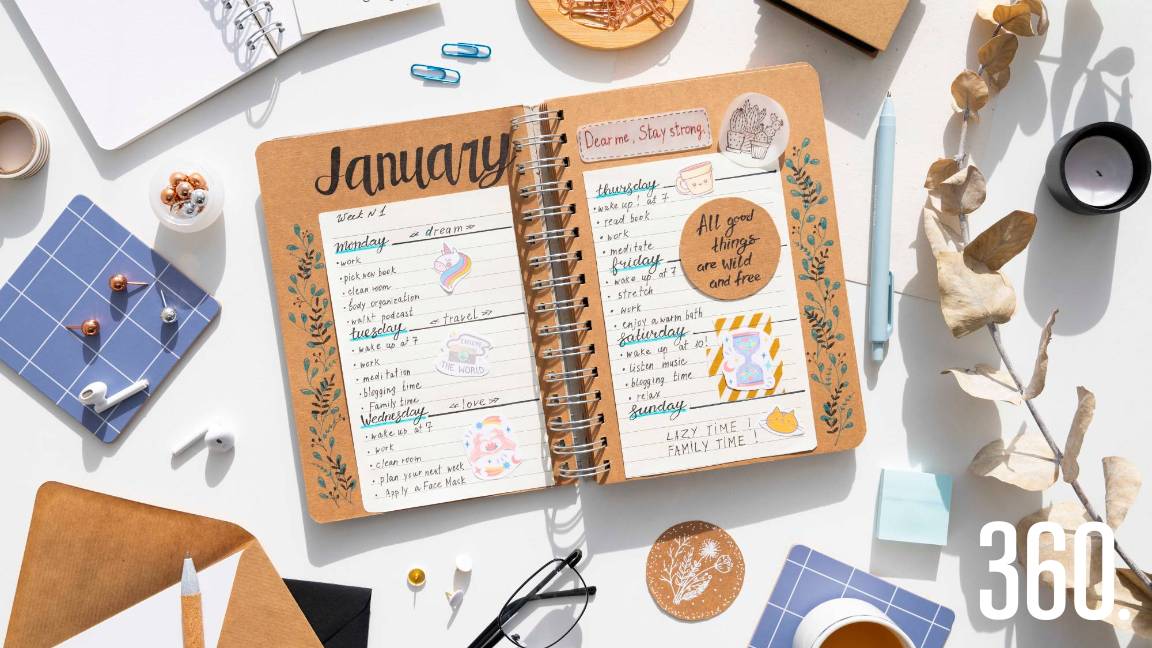 January
Week N1
monday
« dream »
• work
• pick new book
• clean room
• body organization
• walk+ podcast
tuesday
« travel »
• wake up at 7
• work
• meditation
• blogging time
• Family time
EXPLORE
THE WORLD
Wednesday
« love »
• wake up at 7
• work
• clean room
• plan your next week
• Apply a Face Mack
Dear me, Stay strong.
thursday
• wake up! at 7
• read book
• work
• meditate
friday
• wake up at 7
• stretch
• work
• enjoy a warm bath
All good
things
are wild
and free
saturday
• wake up at 10!
• listen music
• blogging time
• relax
sunday
LAZY TIME !
FAMILY TIME !
360.